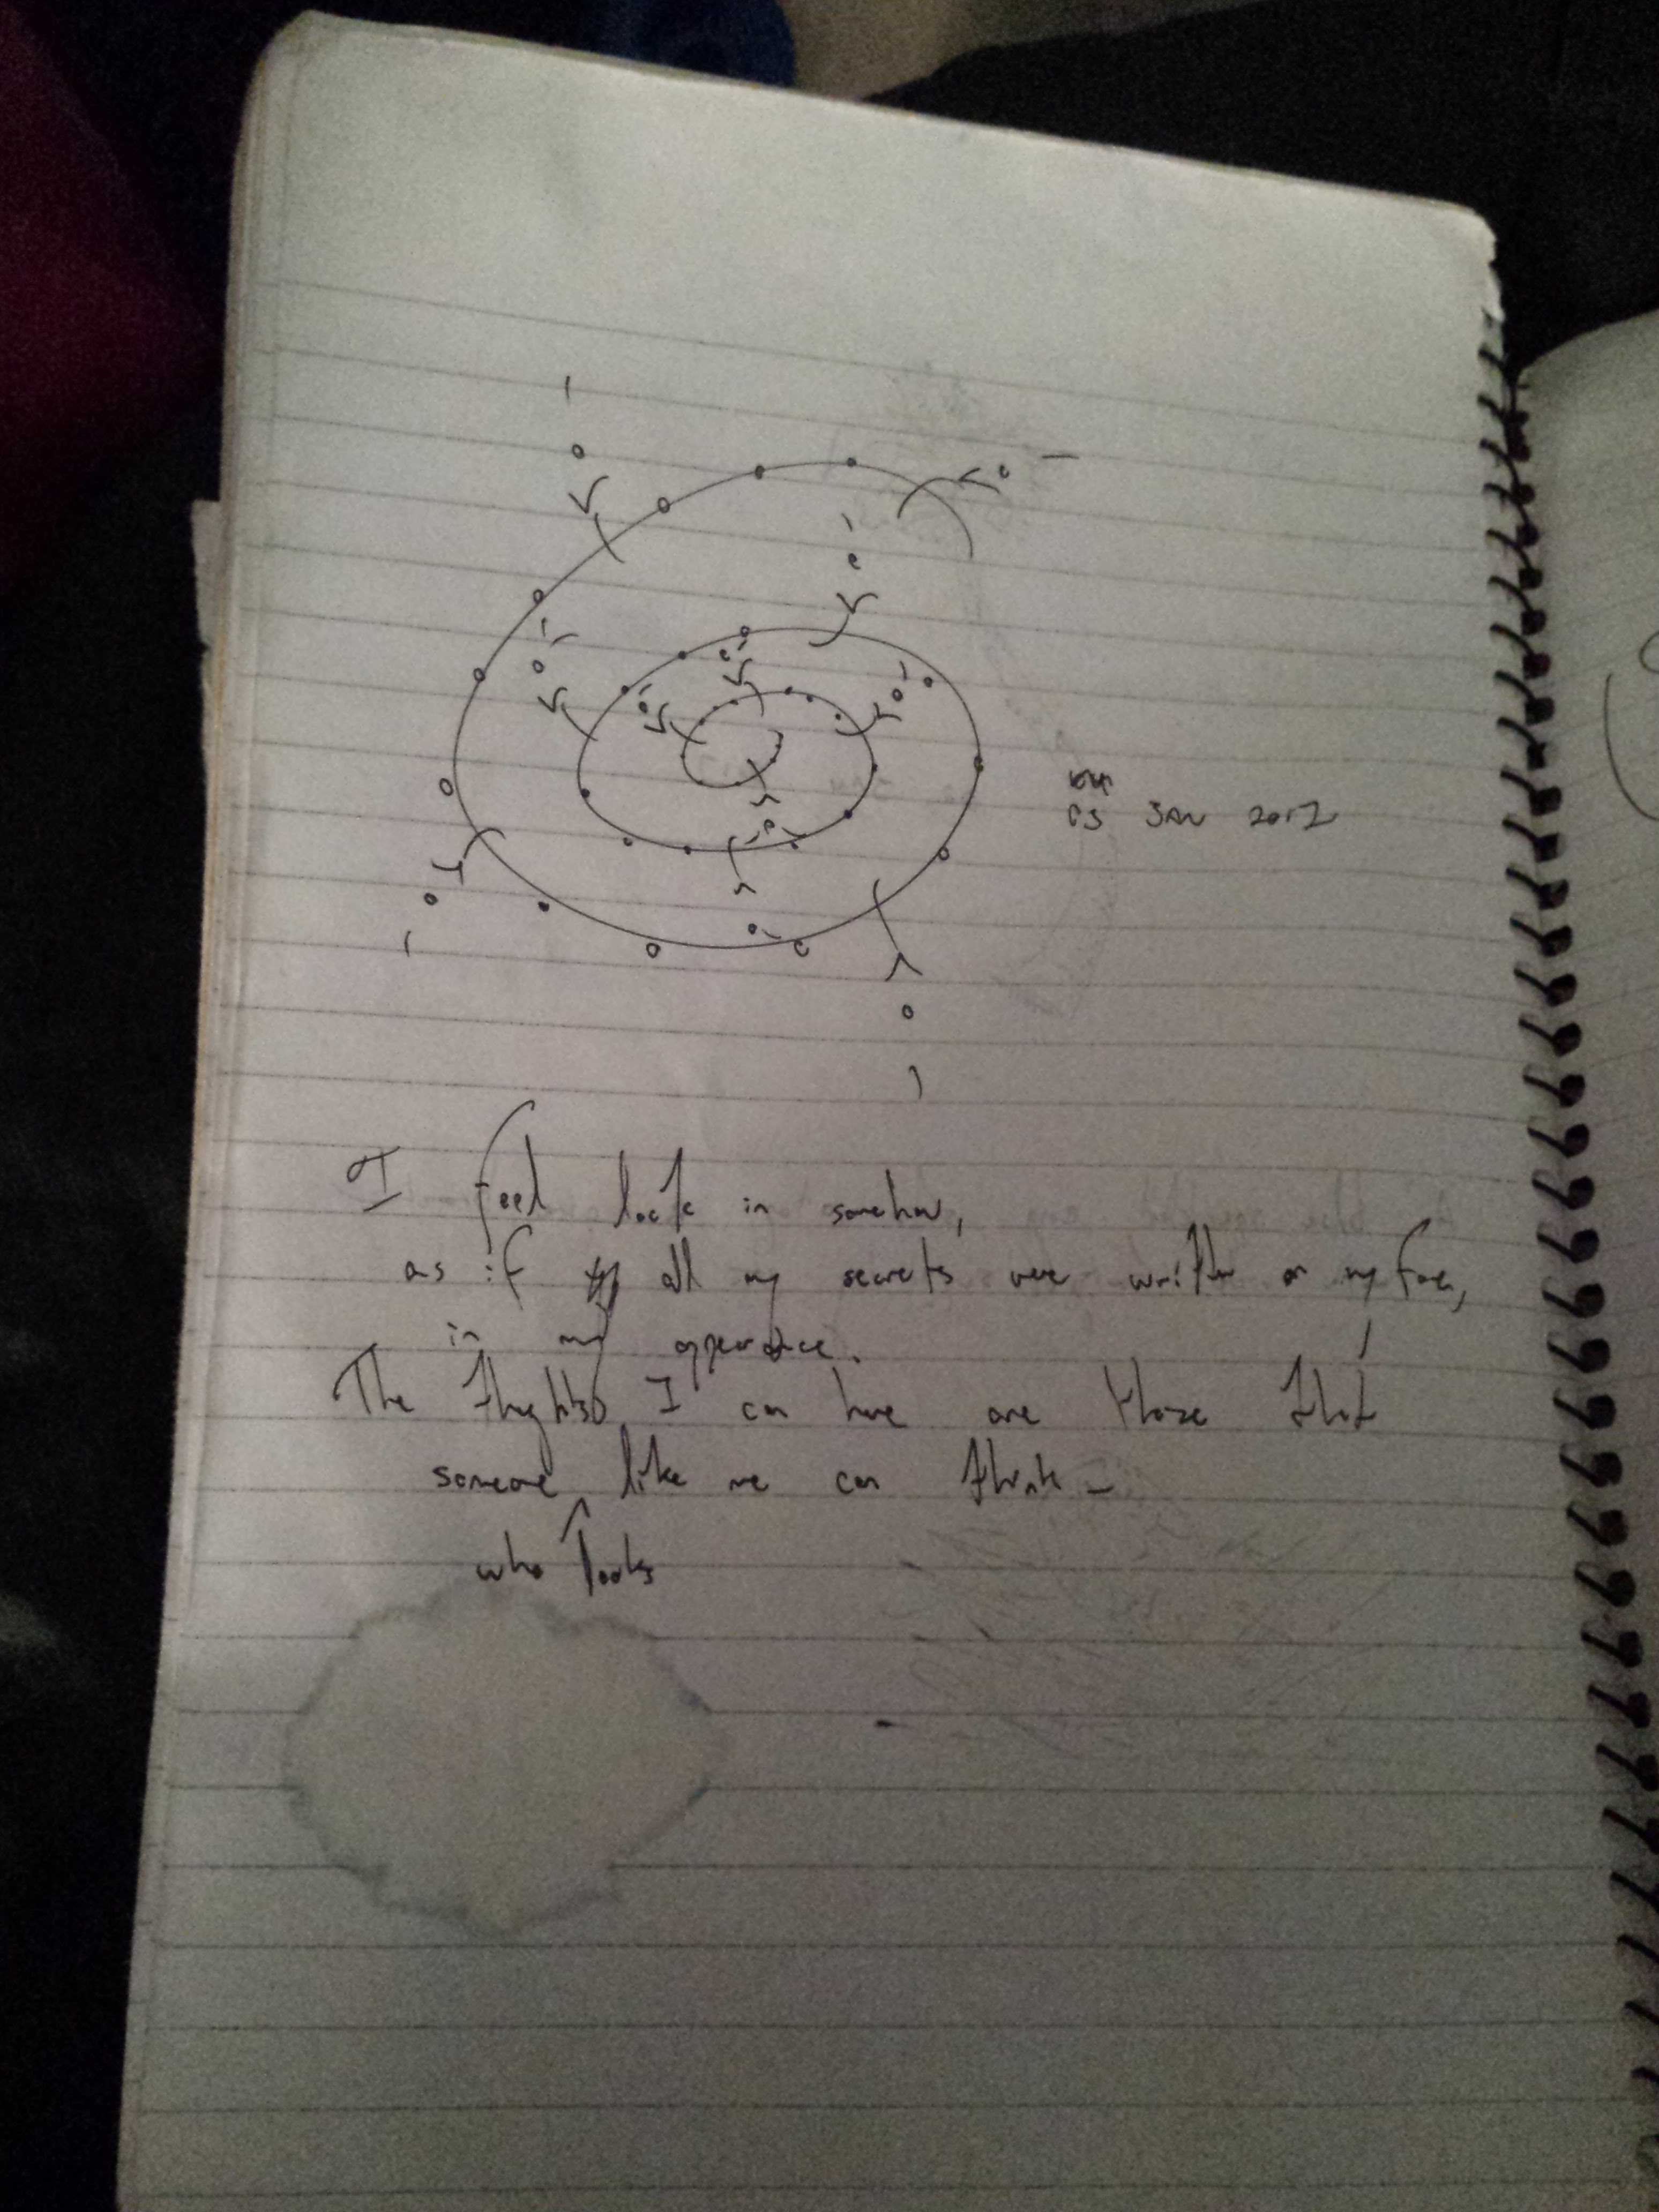 03 JAN 2017
I feel lock in somehow,
as if all my secrets were written on my face,
in my appearance.
The thoughts I can have are those that
someone like me can think -
who looks